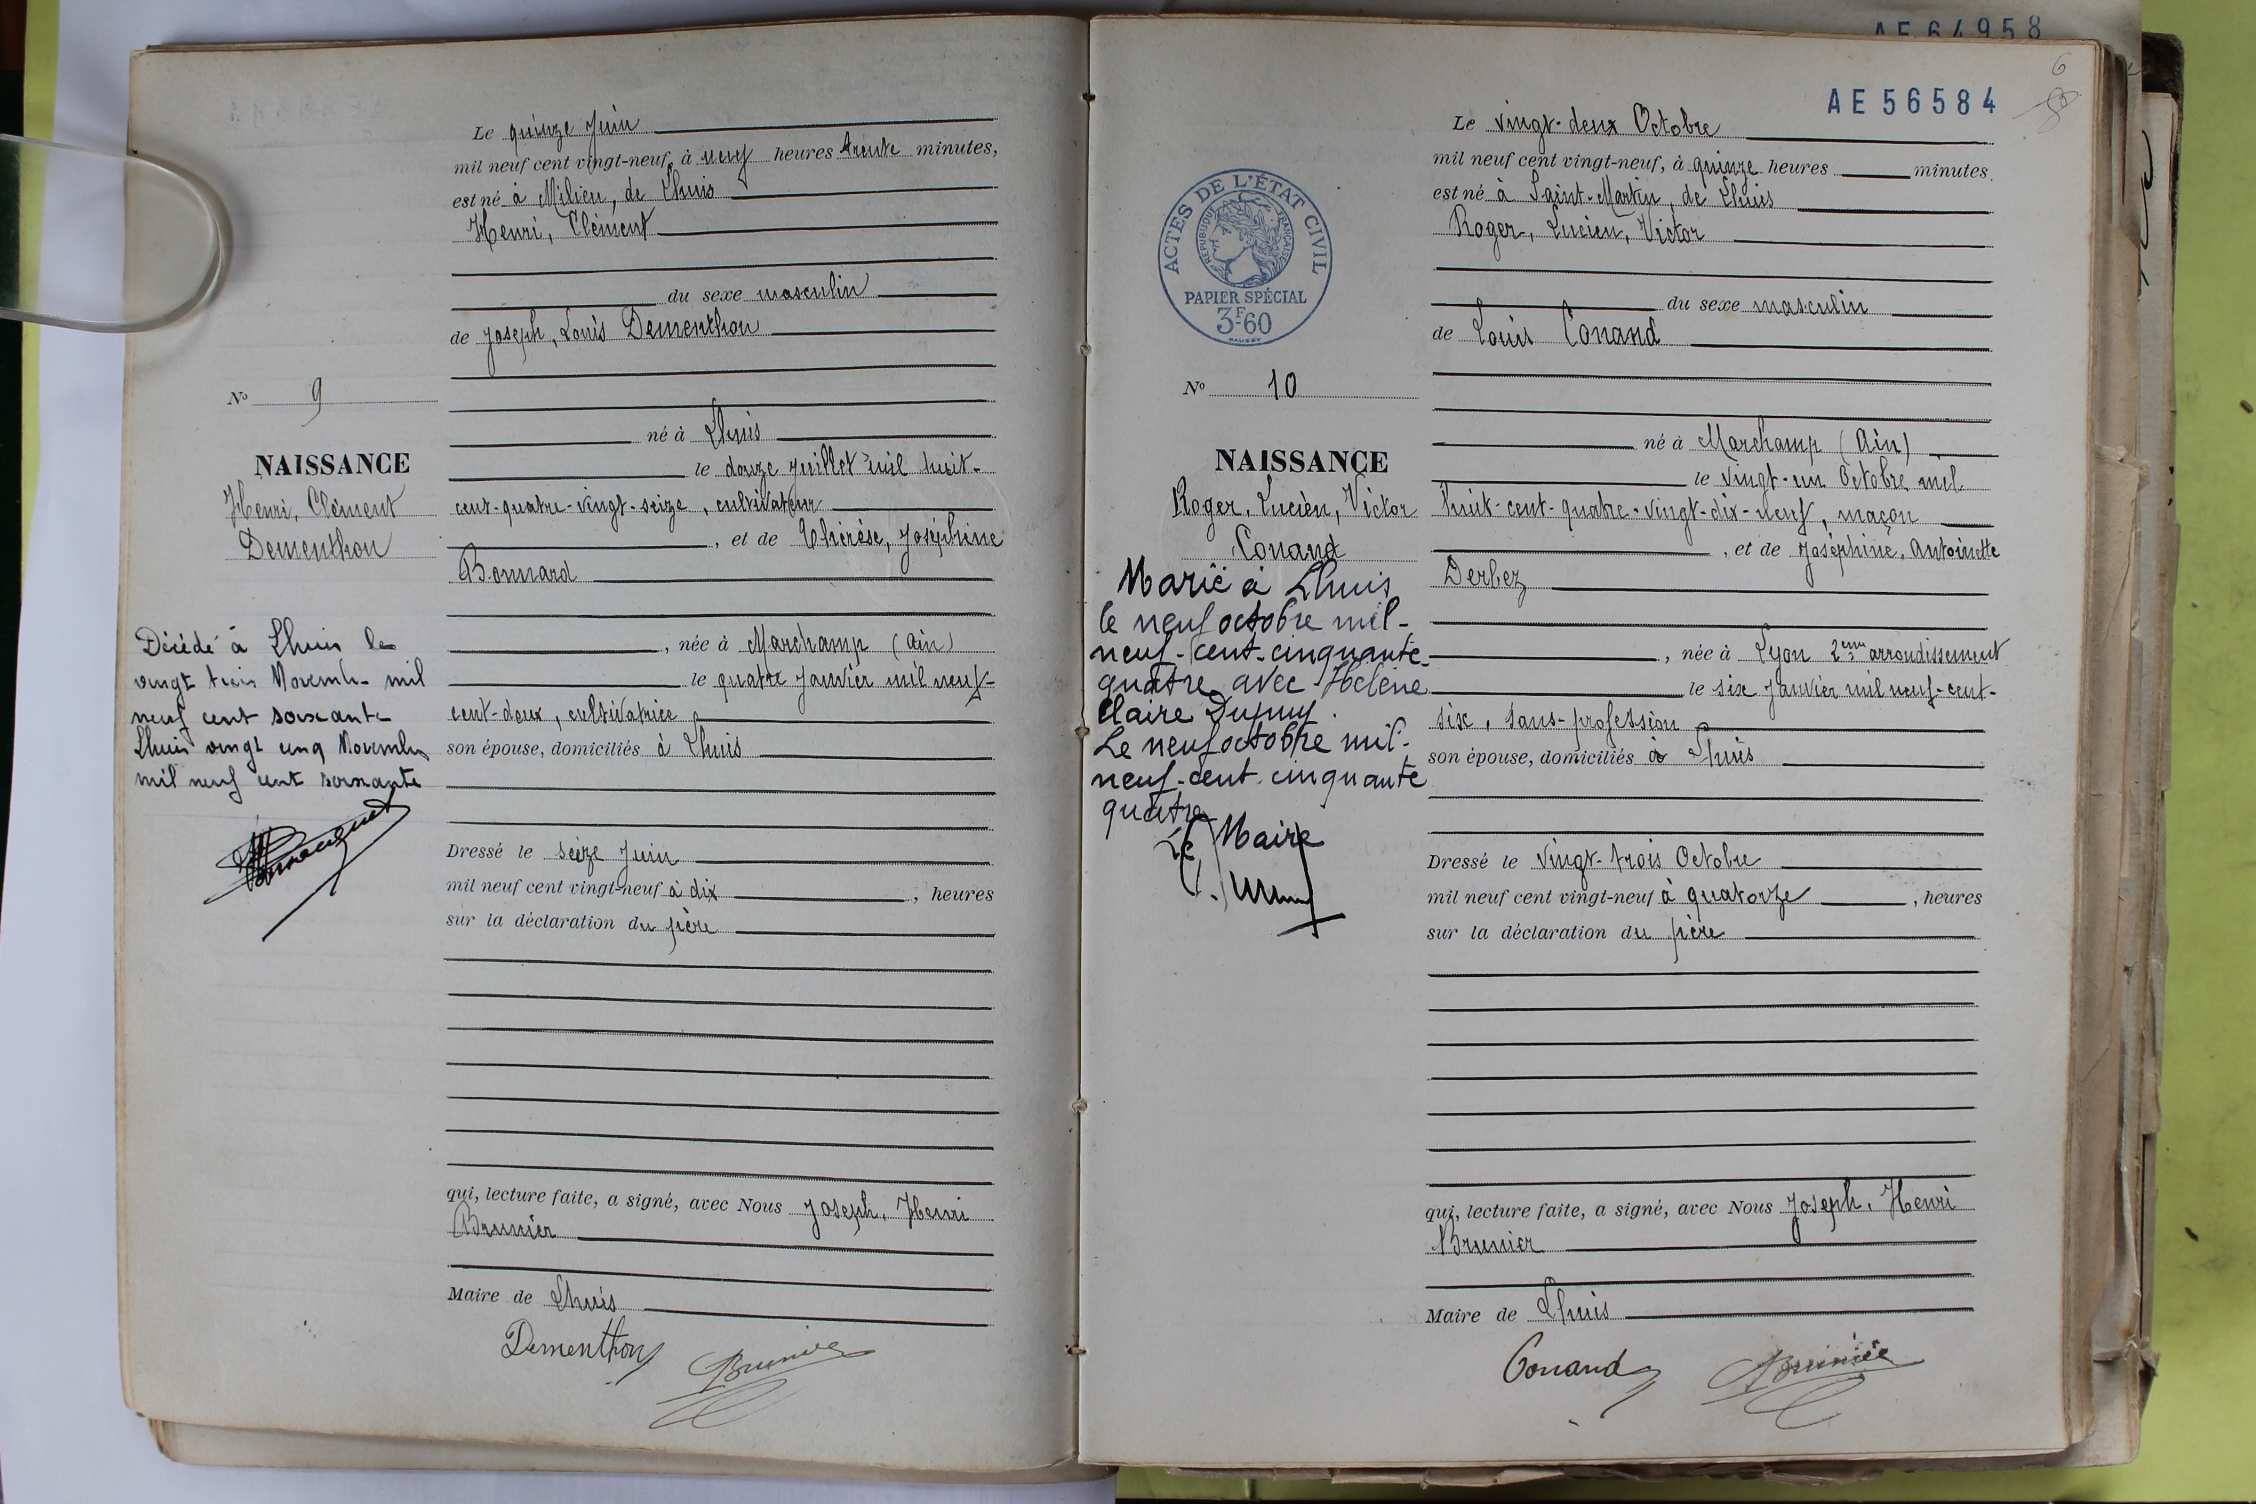 Le quinze Juin
mil neuf cent vingt-neuf, à neuf heures trente minutes,
est né à Milieu, de Lhuis
Henri, Clément
du sexe masculin
de Joseph, Louis Dementhon
né à Lhuis
le douze Juillet mil huit-
cent-quatre-vingt-seize, cultivateur
, et de Thérèse, Joséphine
Bonnard
, née à Marchamp (Ain)
le quatre Janvier mil neuf-
cent-deux, cultivatrice
son épouse, domiciliés à Lhuis
Dressé le seize Juin
mil neuf cent vingt-neuf à dix , heures
sur la déclaration du père
qui, lecture faite, a signé, avec Nous Joseph, Henri
Brunier
Maire de Lhuis
Dementhon Brunier
No 9
NAISSANCE
Henri, Clément
Dementhon
Décédé à Lhuis le
vingt trois Novembre mil
neuf cent soixante
Lhuis vingt cinq Novembre
mil neuf cent soixante
AE 64958
6
AE 56584
Le vingt-deux Octobre
mil neuf cent vingt-neuf, à quinze heures minutes.
est né à Saint-Martin, de Lhuis
Roger, Lucien, Victor
du sexe masculin
de Louis Conand
né à Marchamp (Ain)
le vingt-un Octobre mil
huit-cent-quatre-vingt-dix-neuf, maçon
, et de Joséphine, Antoinette
Derbez
, née à Lyon 2eme arrondissement
le six Janvier mil neuf-cent-
six, sans-profession
son épouse, domiciliés à Lhuis
Dressé le vingt-trois Octobre
mil neuf cent vingt-neuf à quatorze , heures
sur la déclaration du père
qui, lecture faite, a signé, avec Nous Joseph, Henri
Brunier
Maire de Lhuis
Conand Brunier
ACTES DE L'ÉTAT CIVIL
RÉPUBLIQUE FRANÇAISE
PAPIER SPÉCIAL
3F60
No 10
NAISSANCE
Roger, Lucien, Victor
Conand
Marié à Lhuis
le neuf octobre mil-
neuf-cent-cinquante-
quatre avec Hélène
Claire Dupuy.
Le neuf octobre mil-
neuf-cent cinquante
quatre
Le Maire